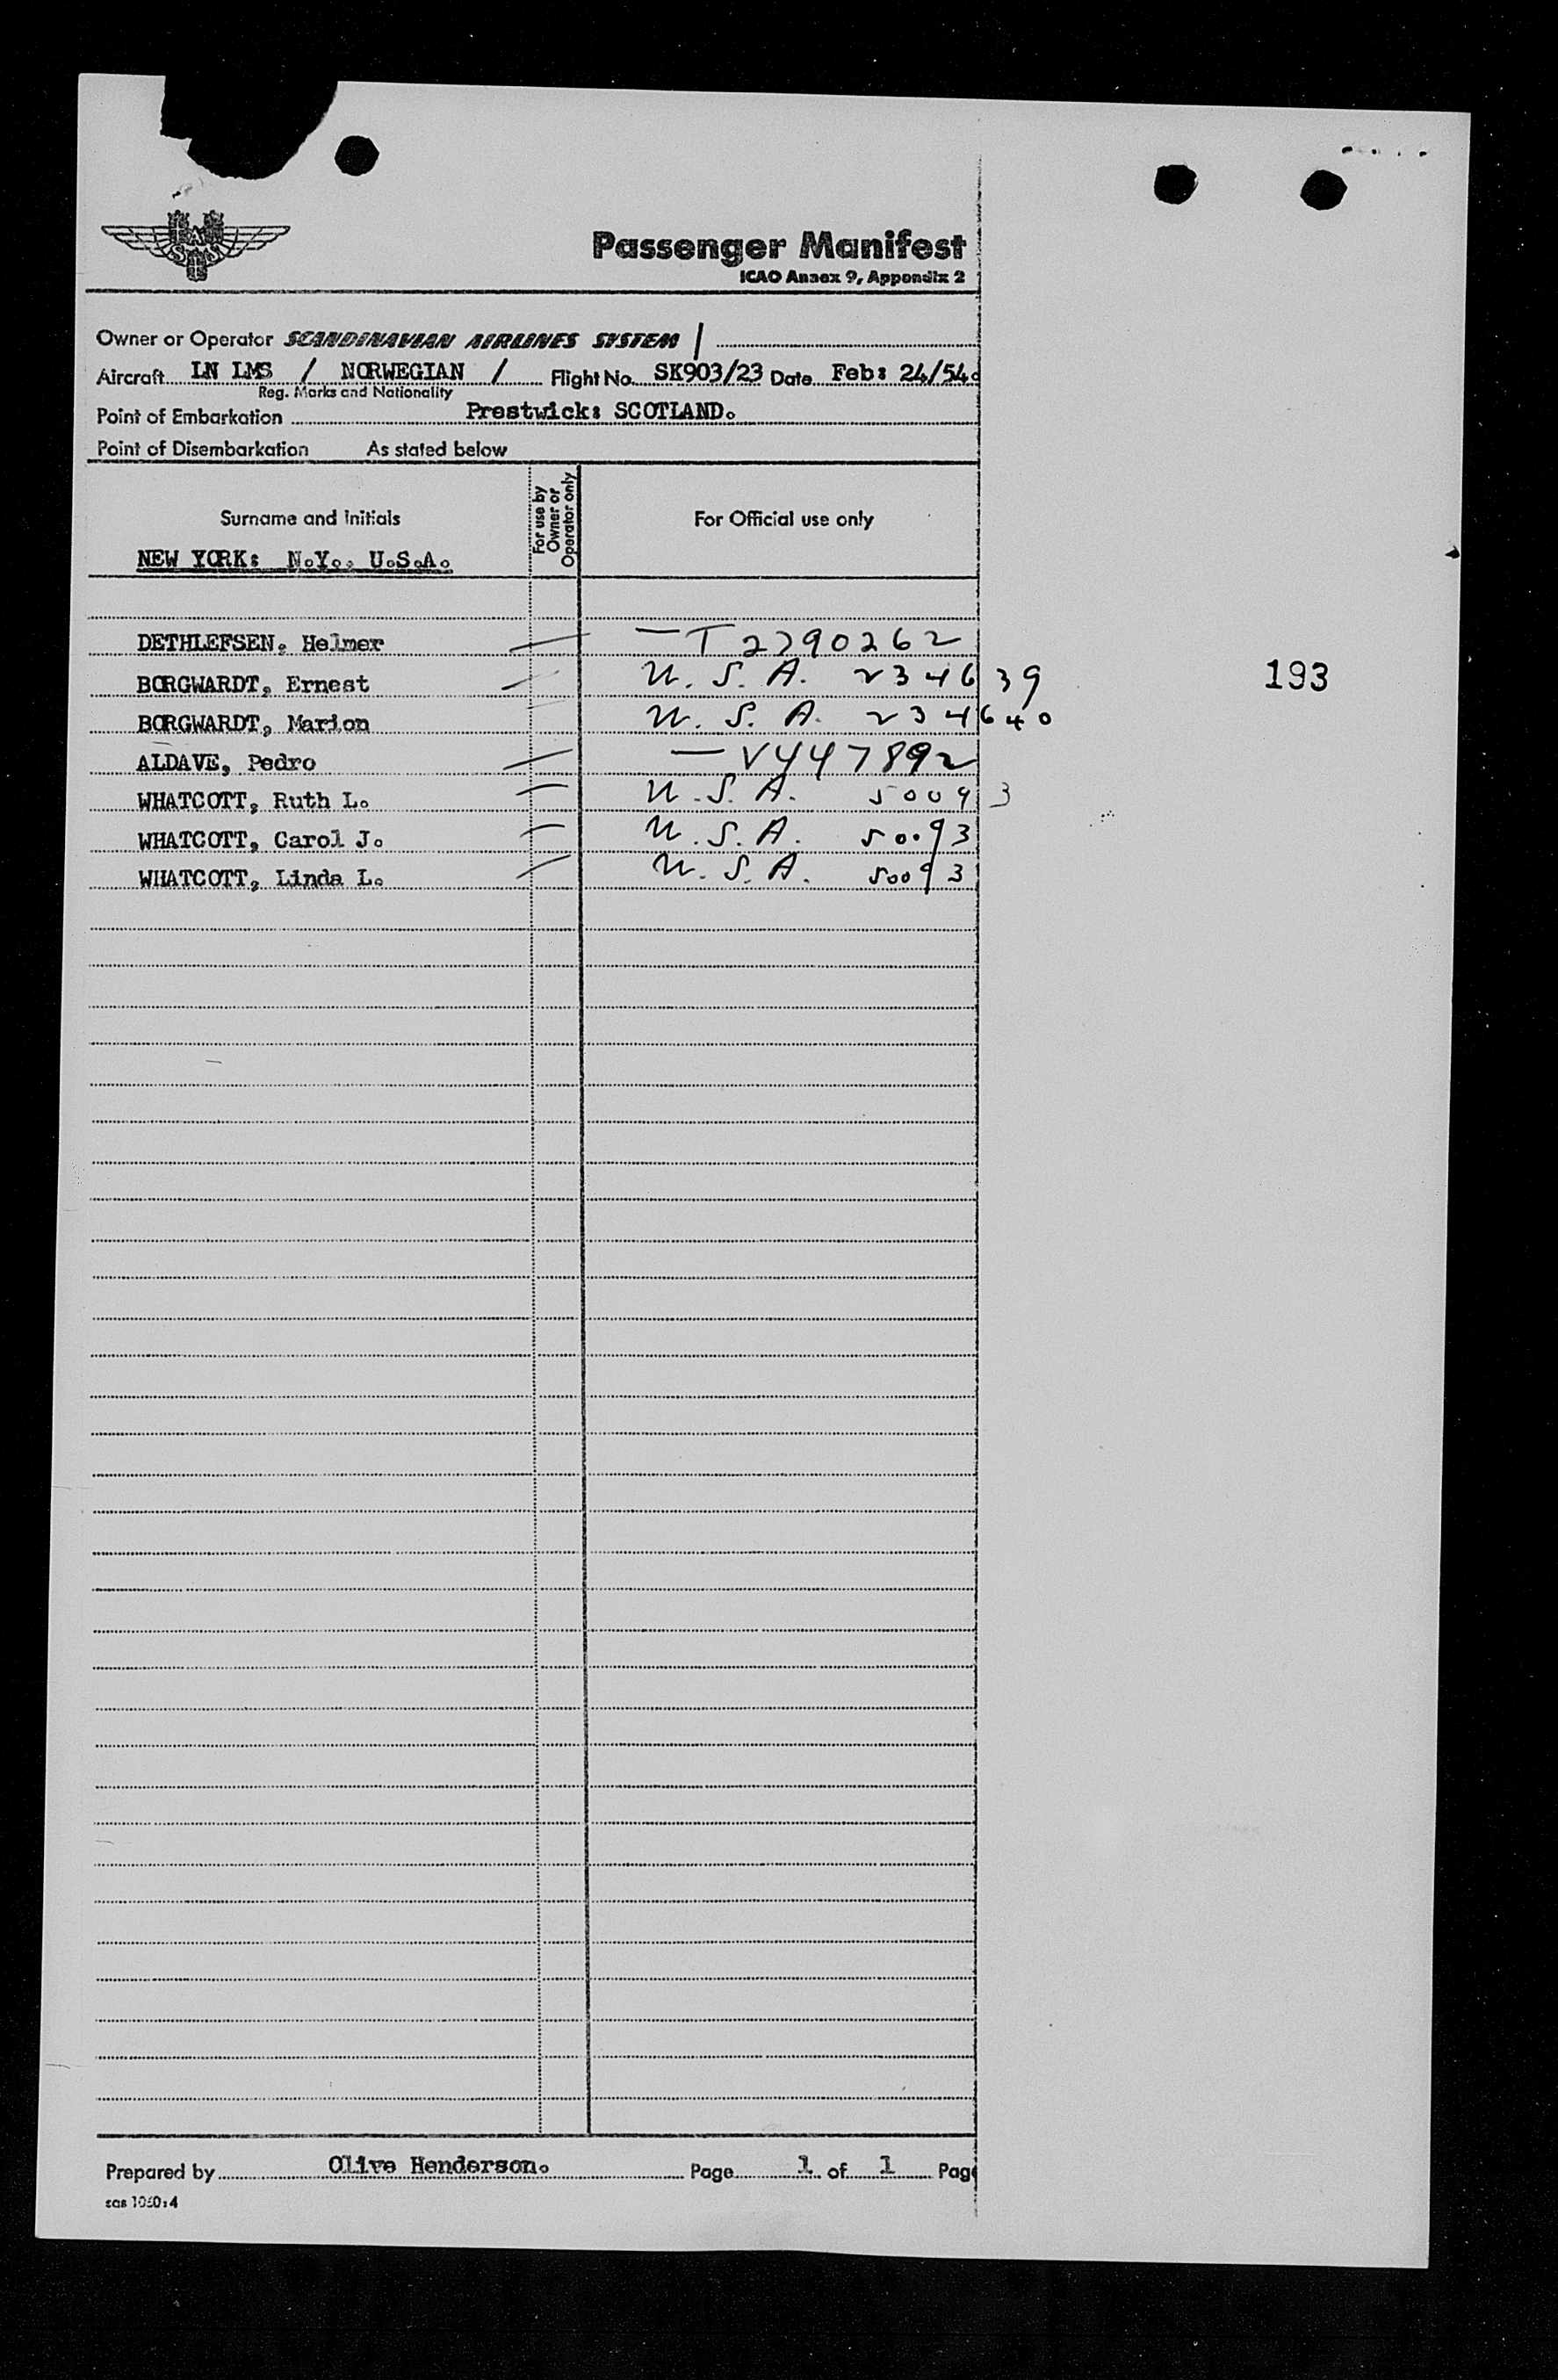 SAS
Passenger Manifest
ICAO Annex 9, Appendix 2
Owner or Operator SCANDINAVIAN AIRLINES SYSTEM /
Aircraft LN LMS / NORWEGIAN / Flight No. SK903/23 Date Feb: 24/54.
Reg. Marks and Nationality
Point of Embarkation Prestwick: SCOTLAND.
Point of Disembarkation As stated below
Surname and Initials For use by Owner or Operator only For Official use only
NEW YORK: N.Y., U.S.A.
DETHLEFSEN, Helmer — T2790262
BORGWARDT, Ernest U.S.A. 234639
193
BORGWARDT, Marion U.S.A. 234640
ALDAVE, Pedro — V447892
WHATCOTT, Ruth L. U.S.A. 50093
WHATCOTT, Carol J. U.S.A. 50093
WHATCOTT, Linda L. U.S.A. 50093
Prepared by Olive Henderson. Page 1 of 1 Page
sas 1050:4